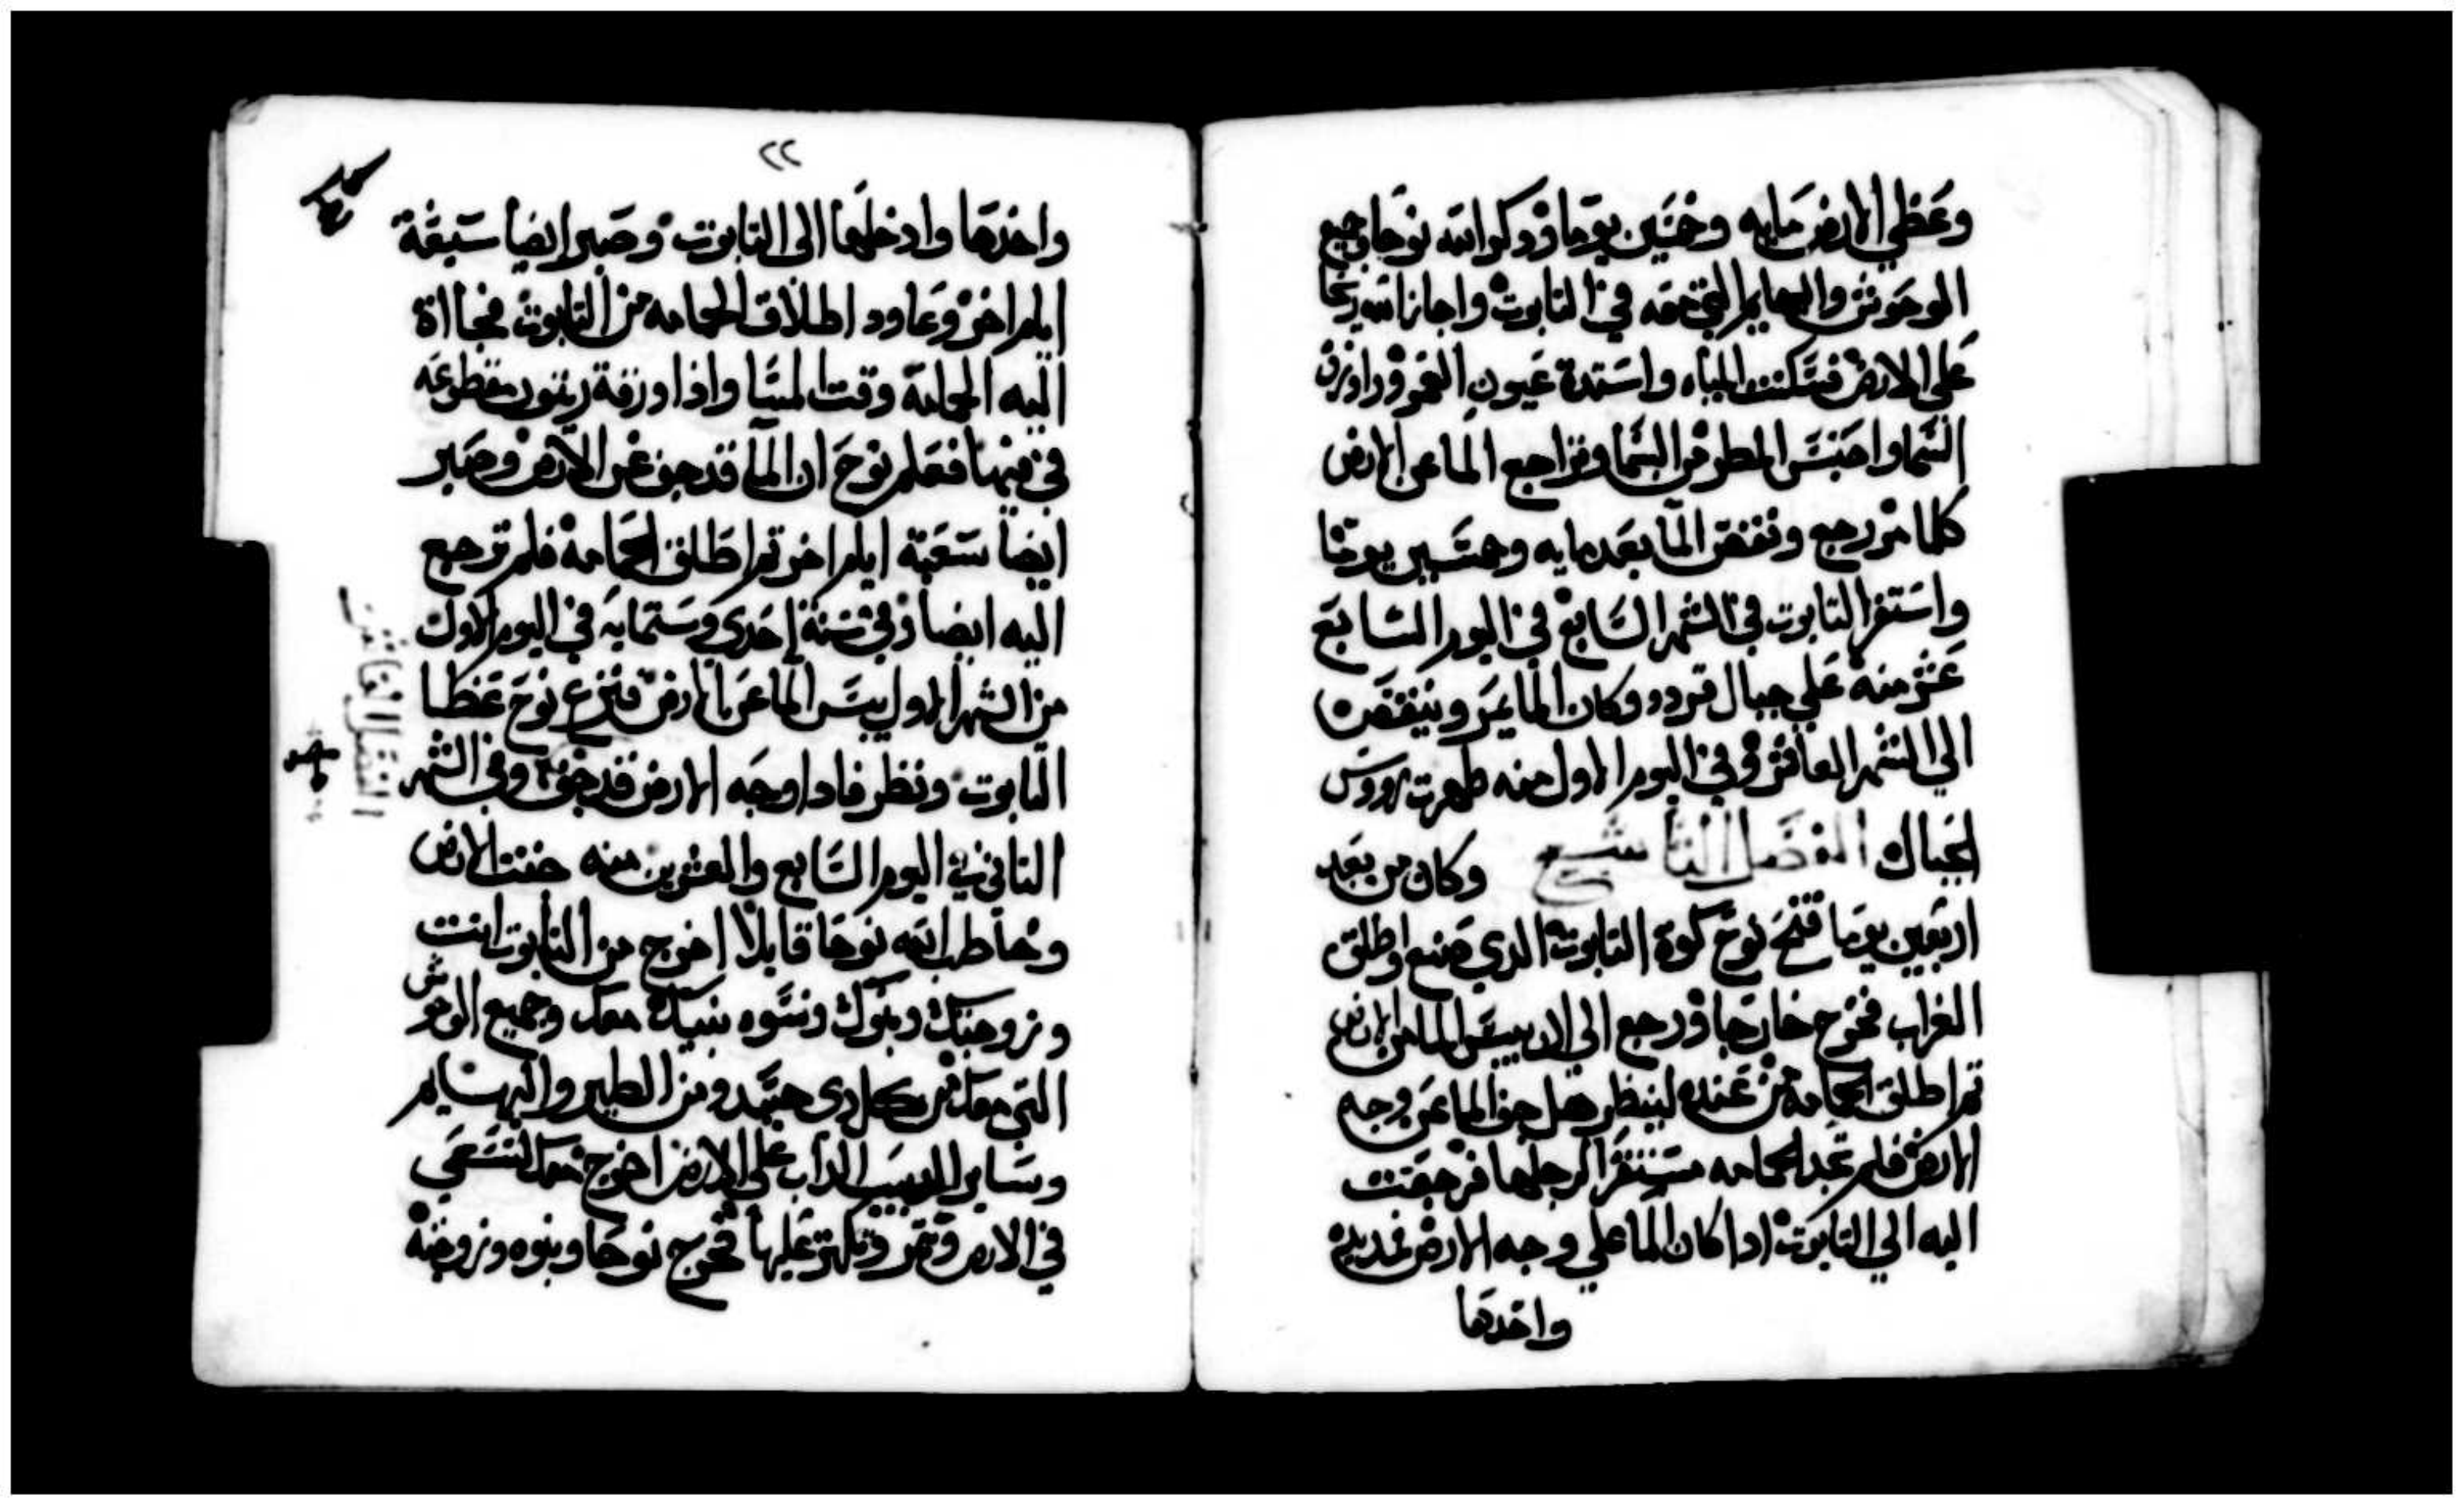 وغطي الارض مايه وخمسين يوما وذكر الله نوحا وجميع
الوحوش والبهايم التي معه في التابوت واجاز الله ريحا
على الارض فسكنت المياه واستدة عيون الغمر وراوزن
السما واحتبس المطر من السما وتراجع الما عن الارض
كلما مر رجع ونقص الما بعد مايه وخمسين يوما
واستقر التابوت في الشهر السابع في اليوم السابع
عشر منه على جبال قردو وكان الما يمر وينقص
الي الشهر العاشر وفي اليوم الاول منه ظهرت رووس
الجبال الفصل التاسع وكان من بعد
اربعين يوما فتح نوح كوة التابوت الذي صنع واطلق
الغراب فخرج خارجا ورجع الي ان يبس الما من الارض
تم اطلق الحمامه من عنده لينظر هل جف الما عن وجه
الارض فلم تجد الحمامه مستقرا لرجلها فرجعت
اليه الي التابوت اذا كان الما على وجه الارض فمد يده
واخدها
٢٢
واخدها وادخلها الى التابوت وصبر ايضا سبعة
ايام اخر وعاود اطلاق الحمامه من التابوت فجااة
اليه الحمامة وقت المسا واذا ورقة زيتون مقطوعه
في فيها فعلم نوح ان الما قد جف عن الارض وصبر
ايضا سبعة ايام اخر تم اطلق الحمامة فلم ترجع
اليه ايضا وفي سنة احدي وستمايه في اليوم الاول
من الشهر الاول يبس الما عن الارض فنزع نوح غطا
التابوت ونظر فادا وجه الارض قد جف وفي الشهر
التاني في اليوم السابع والعشرين منه جفت الارض
وخاطب الله نوحا قايلا اخرج من التابوت انت
وزوجتك وبنوك ونسوه بنيك معك وجميع الوحوش
التي معك من كل دي جسد ومن الطير والبهايم
وساير الدبيب الداب على الارض اخرج معك لتسعي
في الارض وتمر وتكتر عليها فخرج نوحا وبنوه وزوجته